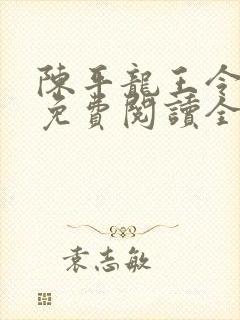 陳平龍王令
免費閱讀全
袁志敏